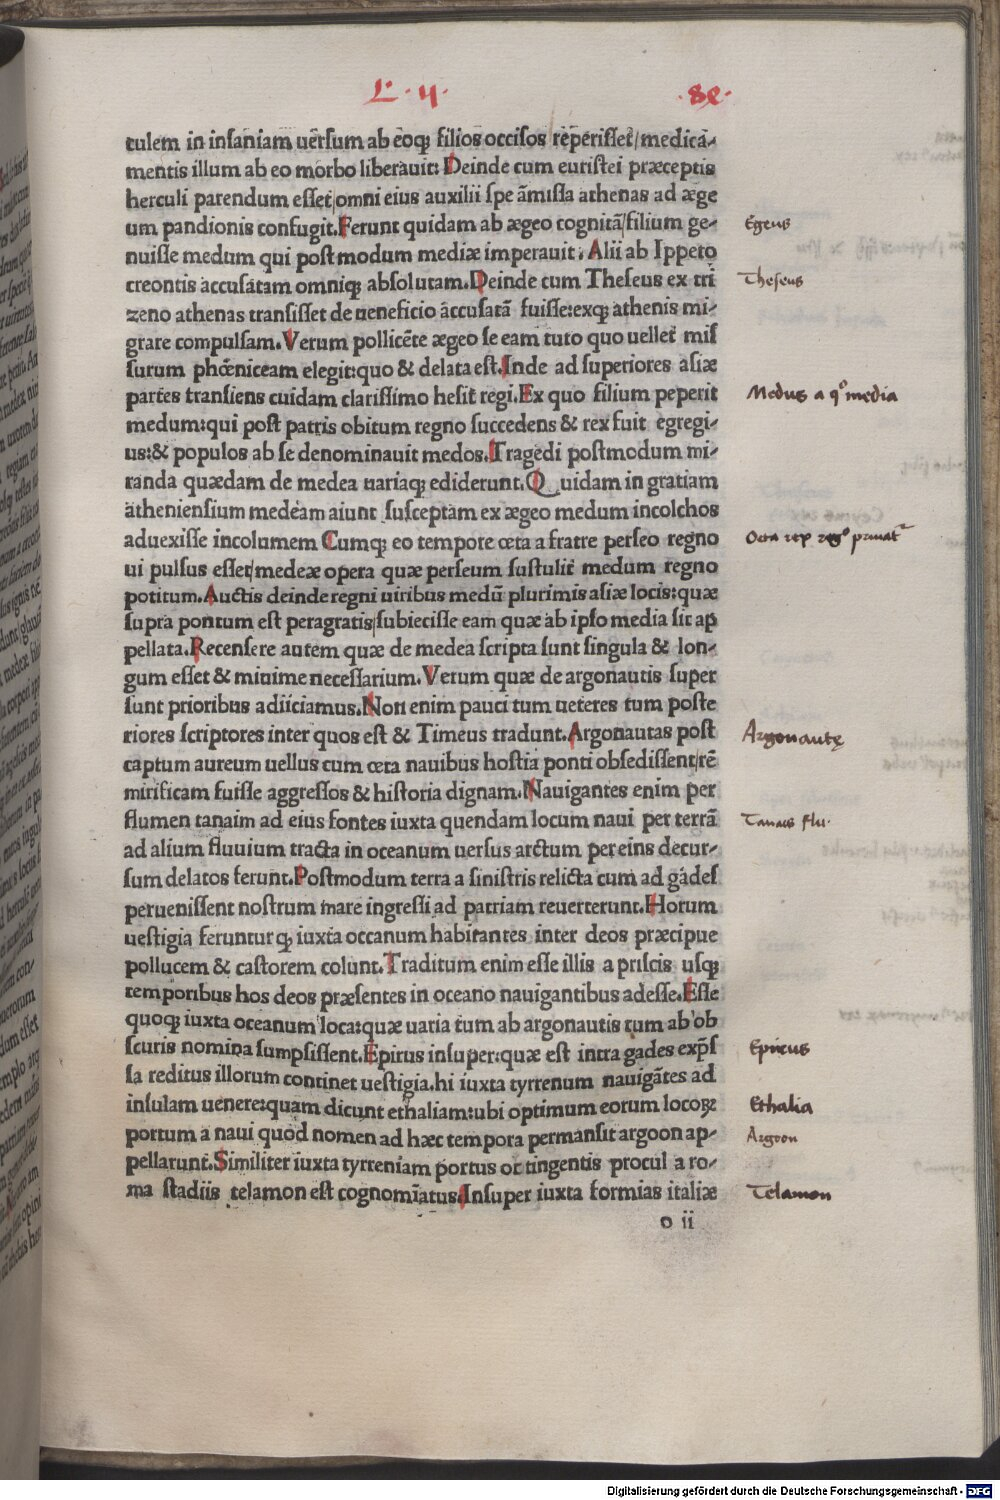 L. 4.
culem in inſaniam uerſum ab eoq; filios occiſos reperiſſet/medicā-
mentis illum ab eo morbo liberauit: Deinde cum euriſtei præceptis
herculi parendum eſſet/omni eius auxilii ſpe āmiſſa athenas ad æge
um pandionis confugit. Ferunt quidam ab ægeo cognitā/filium ge-
nuiſſe medum qui poſt modum mediæ imperauit: Alii ab Ippeto
creontis accuſatam omniq; abſolutam. Deinde cum Theſeus ex tri
zeno athenas tranſiſſet de ueneficio accuſatā fuiſſe:exq; athenis mi-
grare compulſam. Verum pollicēte ægeo ſe eam tuto quo uellet miſ
ſurum phœniceam elegit:quo & delata eſt. Inde ad ſuperiores aſiæ
partes tranſiens cuidam clariſſimo heſit regi. Ex quo filium peperit
medum:qui poſt patris obitum regno ſuccedens & rex fuit egregi-
us:& populos ab ſe denominauit medos. Tragedi poſtmodum mi-
randa quædam de medea uariaq; ediderunt. Quidam in gratiam
athenienſium medeam aiunt ſuſceptam ex ægeo medum incolchos
aduexiſſe incolumem Cumq; eo tempore œta a fratre perſeo regno
ui pulſus eſſet/medeæ opera quæ perſeum ſuſtulit medum regno
potitum. Auctis deinde regni uiribus medū plurimis aſiæ locis:quæ
ſupra pontum eſt peragratis/ſubieciſſe eam quæ ab ipſo media ſit ap
pellata. Recenſere autem quæ de medea ſcripta ſunt ſingula & lon-
gum eſſet & minime neceſſarium. Verum quæ de argonautis ſuper
ſunt prioribus adiiciamus. Non enim pauci tum ueteres tum poſte
riores ſcriptores inter quos eſt & Timeus tradunt. Argonautas poſt
captum aureum uellus cum œta nauibus hoſtia ponti obſediſſent/rē
mirificam fuiſſe aggreſſos & hiſtoria dignam. Nauigantes enim per
flumen tanaim ad eius fontes iuxta quendam locum naui per terrā
ad alium fluuium tracta in oceanum uerſus arctum per eius decur-
ſum delatos ferunt. Poſtmodum terra a ſiniſtris relicta cum ad gadeſ
perueniſſent noſtrum mare ingreſſi ad patriam reuerterunt. Horum
ueſtigia feruntur q; iuxta occanum habitantes inter deos præcipue
pollucem & caſtorem colunt. Traditum enim eſſe illis a priſcis uſq;
temporibus hos deos præſentes in oceano nauigantibus adeſſe. Eſſe
quoq; iuxta oceanum loca:quæ uaria tum ab argonautis tum ab ob
ſcuris nomina ſumpſiſſent. Epirus inſuper:quæ eſt intra gades exp̄ſ
ſa reditus illorum continet ueſtigia. hi iuxta tyrrenum nauigātes ad
inſulam uenere:quam dicunt ethaliam:ubi optimum eorum locoꝝ
portum a naui quod nomen ad hæc tempora permanſit argoon ap-
pellarunt. Similiter iuxta tyrreniam portus octingentis procul a ro-
ma ſtadiis telamon eſt cognomīatus. Inſuper iuxta formias italiæ
o ii
Egeus
Theſeus
Medus a qͦ media
Oeta rex regͦ priuatʳ
Argonautę
Tanais flu.
Epirus
Ethalia
Argoon
Telamon
Digitalisierung gefördert durch die Deutsche Forschungsgemeinschaft - DFG